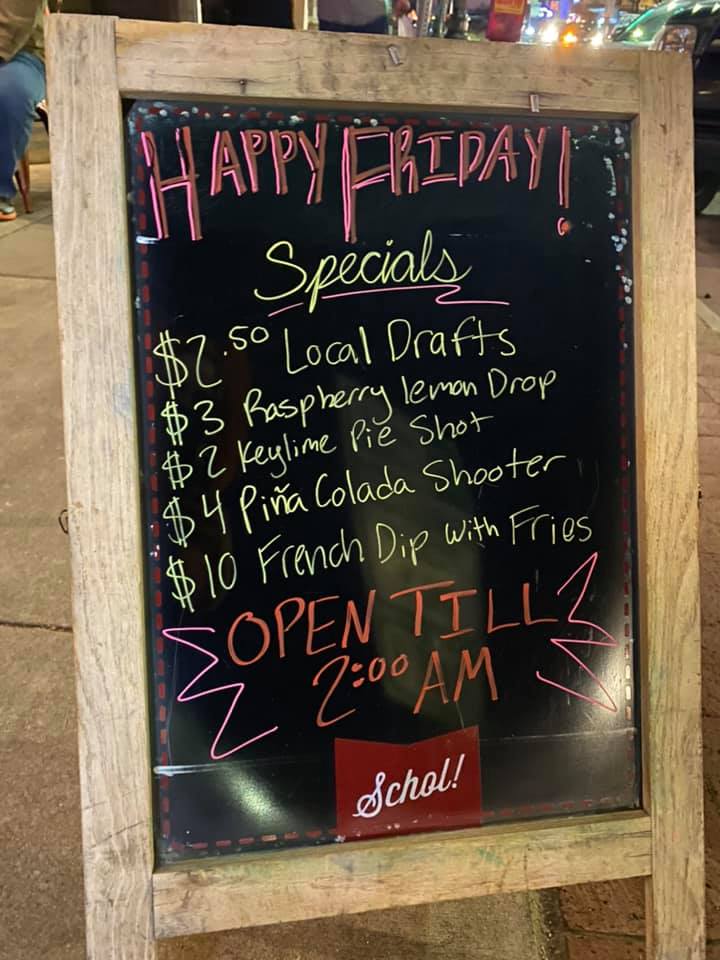 HAPPY FRIDAY!
Specials
$2.50 Local Drafts
$3 Raspberry lemon Drop
$2 Keylime Pie Shot
$4 Piña Colada Shooter
$10 French Dip with Fries
OPEN TILL
2:00 AM
Schol!